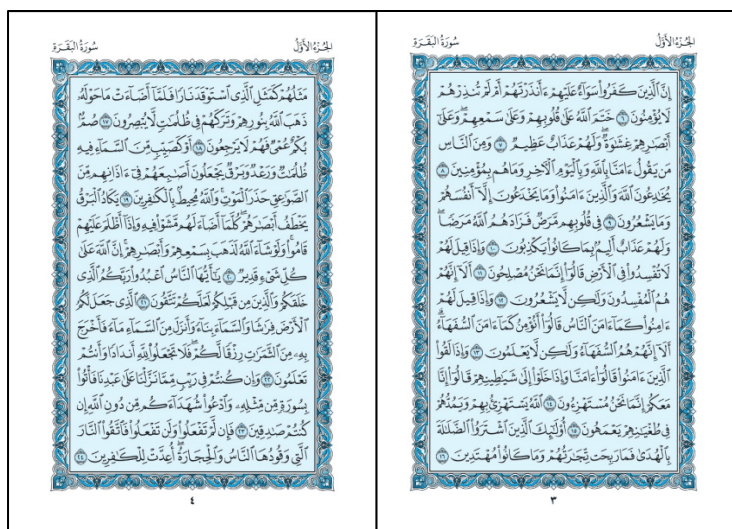 سُورَةُ البَقَرَةِ
الجُزْءُ الأَوَّلُ
إِنَّ ٱلَّذِينَ كَفَرُوا۟ سَوَآءٌ عَلَيْهِمْ ءَأَنذَرْتَهُمْ أَمْ لَمْ تُنذِرْهُمْ
لَا يُؤْمِنُونَ ٦ خَتَمَ ٱللَّهُ عَلَىٰ قُلُوبِهِمْ وَعَلَىٰ سَمْعِهِمْ ۖ وَعَلَىٰٓ
أَبْصَٰرِهِمْ غِشَٰوَةٌ ۖ وَلَهُمْ عَذَابٌ عَظِيمٌ ٧ وَمِنَ ٱلنَّاسِ
مَن يَقُولُ ءَامَنَّا بِٱللَّهِ وَبِٱلْيَوْمِ ٱلْءَاخِرِ وَمَا هُم بِمُؤْمِنِينَ ٨
يُخَٰدِعُونَ ٱللَّهَ وَٱلَّذِينَ ءَامَنُوا۟ وَمَا يَخْدَعُونَ إِلَّآ أَنفُسَهُمْ
وَمَا يَشْعُرُونَ ٩ فِى قُلُوبِهِم مَّرَضٌ فَزَادَهُمُ ٱللَّهُ مَرَضًا ۖ
وَلَهُمْ عَذَابٌ أَلِيمٌۢ بِمَا كَانُوا۟ يَكْذِبُونَ ١٠ وَإِذَا قِيلَ لَهُمْ
لَا تُفْسِدُوا۟ فِى ٱلْأَرْضِ قَالُوٓا۟ إِنَّمَا نَحْنُ مُصْلِحُونَ ١١ أَلَآ إِنَّهُمْ
هُمُ ٱلْمُفْسِدُونَ وَلَٰكِن لَّا يَشْعُرُونَ ١٢ وَإِذَا قِيلَ لَهُمْ
ءَامِنُوا۟ كَمَآ ءَامَنَ ٱلنَّاسُ قَالُوٓا۟ أَنُؤْمِنُ كَمَآ ءَامَنَ ٱلسُّفَهَآءُ ۗ
أَلَآ إِنَّهُمْ هُمُ ٱلسُّفَهَآءُ وَلَٰكِن لَّا يَعْلَمُونَ ١٣ وَإِذَا لَقُوا۟
ٱلَّذِينَ ءَامَنُوا۟ قَالُوٓا۟ ءَامَنَّا وَإِذَا خَلَوْا۟ إِلَىٰ شَيَٰطِينِهِمْ قَالُوٓا۟ إِنَّا
مَعَكُمْ إِنَّمَا نَحْنُ مُسْتَهْزِءُونَ ١٤ ٱللَّهُ يَسْتَهْزِئُ بِهِمْ وَيَمُدُّهُمْ
فِى طُغْيَٰنِهِمْ يَعْمَهُونَ ١٥ أُو۟لَٰٓئِكَ ٱلَّذِينَ ٱشْتَرَوُا۟ ٱلضَّلَٰلَةَ
بِٱلْهُدَىٰ فَمَا رَبِحَت تِّجَٰرَتُهُمْ وَمَا كَانُوا۟ مُهْتَدِينَ ١٦
٣
سُورَةُ البَقَرَةِ
الجُزْءُ الأَوَّلُ
مَثَلُهُمْ كَمَثَلِ ٱلَّذِى ٱسْتَوْقَدَ نَارًا فَلَمَّآ أَضَآءَتْ مَا حَوْلَهُۥ
ذَهَبَ ٱللَّهُ بِنُورِهِمْ وَتَرَكَهُمْ فِى ظُلُمَٰتٍ لَّا يُبْصِرُونَ ١٧ صُمٌّۢ
بُكْمٌ عُمْىٌ فَهُمْ لَا يَرْجِعُونَ ١٨ أَوْ كَصَيِّبٍ مِّنَ ٱلسَّمَآءِ فِيهِ
ظُلُمَٰتٌ وَرَعْدٌ وَبَرْقٌ يَجْعَلُونَ أَصَٰبِعَهُمْ فِىٓ ءَاذَانِهِم مِّنَ
ٱلصَّوَٰعِقِ حَذَرَ ٱلْمَوْتِ ۚ وَٱللَّهُ مُحِيطٌۢ بِٱلْكَٰفِرِينَ ١٩ يَكَادُ ٱلْبَرْقُ
يَخْطَفُ أَبْصَٰرَهُمْ ۖ كُلَّمَآ أَضَآءَ لَهُم مَّشَوْا۟ فِيهِ وَإِذَآ أَظْلَمَ عَلَيْهِمْ
قَامُوا۟ ۚ وَلَوْ شَآءَ ٱللَّهُ لَذَهَبَ بِسَمْعِهِمْ وَأَبْصَٰرِهِمْ ۚ إِنَّ ٱللَّهَ عَلَىٰ
كُلِّ شَىْءٍ قَدِيرٌ ٢٠ يَٰٓأَيُّهَا ٱلنَّاسُ ٱعْبُدُوا۟ رَبَّكُمُ ٱلَّذِى
خَلَقَكُمْ وَٱلَّذِينَ مِن قَبْلِكُمْ لَعَلَّكُمْ تَتَّقُونَ ٢١ ٱلَّذِى جَعَلَ لَكُمُ
ٱلْأَرْضَ فِرَٰشًا وَٱلسَّمَآءَ بِنَآءً وَأَنزَلَ مِنَ ٱلسَّمَآءِ مَآءً فَأَخْرَجَ
بِهِۦ مِنَ ٱلثَّمَرَٰتِ رِزْقًا لَّكُمْ ۖ فَلَا تَجْعَلُوا۟ لِلَّهِ أَندَادًا وَأَنتُمْ
تَعْلَمُونَ ٢٢ وَإِن كُنتُمْ فِى رَيْبٍ مِّمَّا نَزَّلْنَا عَلَىٰ عَبْدِنَا فَأْتُوا۟
بِسُورَةٍ مِّن مِّثْلِهِۦ وَٱدْعُوا۟ شُهَدَآءَكُم مِّن دُونِ ٱللَّهِ إِن
كُنتُمْ صَٰدِقِينَ ٢٣ فَإِن لَّمْ تَفْعَلُوا۟ وَلَن تَفْعَلُوا۟ فَٱتَّقُوا۟ ٱلنَّارَ
ٱلَّتِى وَقُودُهَا ٱلنَّاسُ وَٱلْحِجَارَةُ ۖ أُعِدَّتْ لِلْكَٰفِرِينَ ٢٤
٤